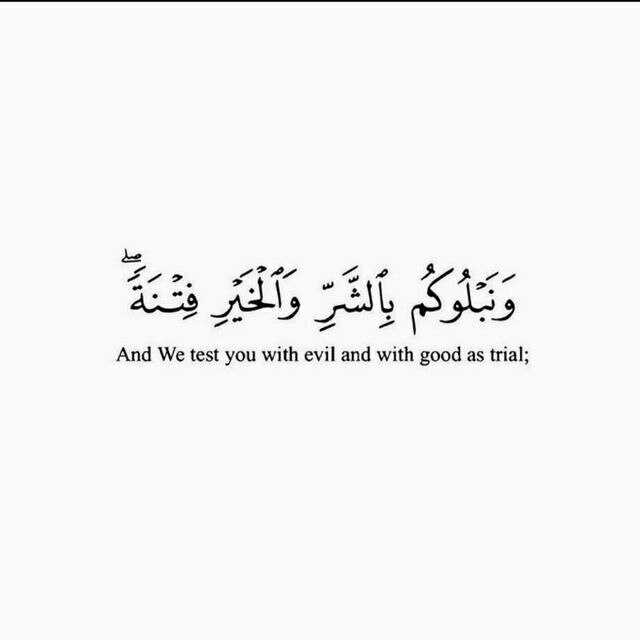 وَنَبۡلُوكُم بِٱلشَّرِّ وَٱلۡخَيۡرِ فِتۡنَةٗۖ
And We test you with evil and with good as trial;